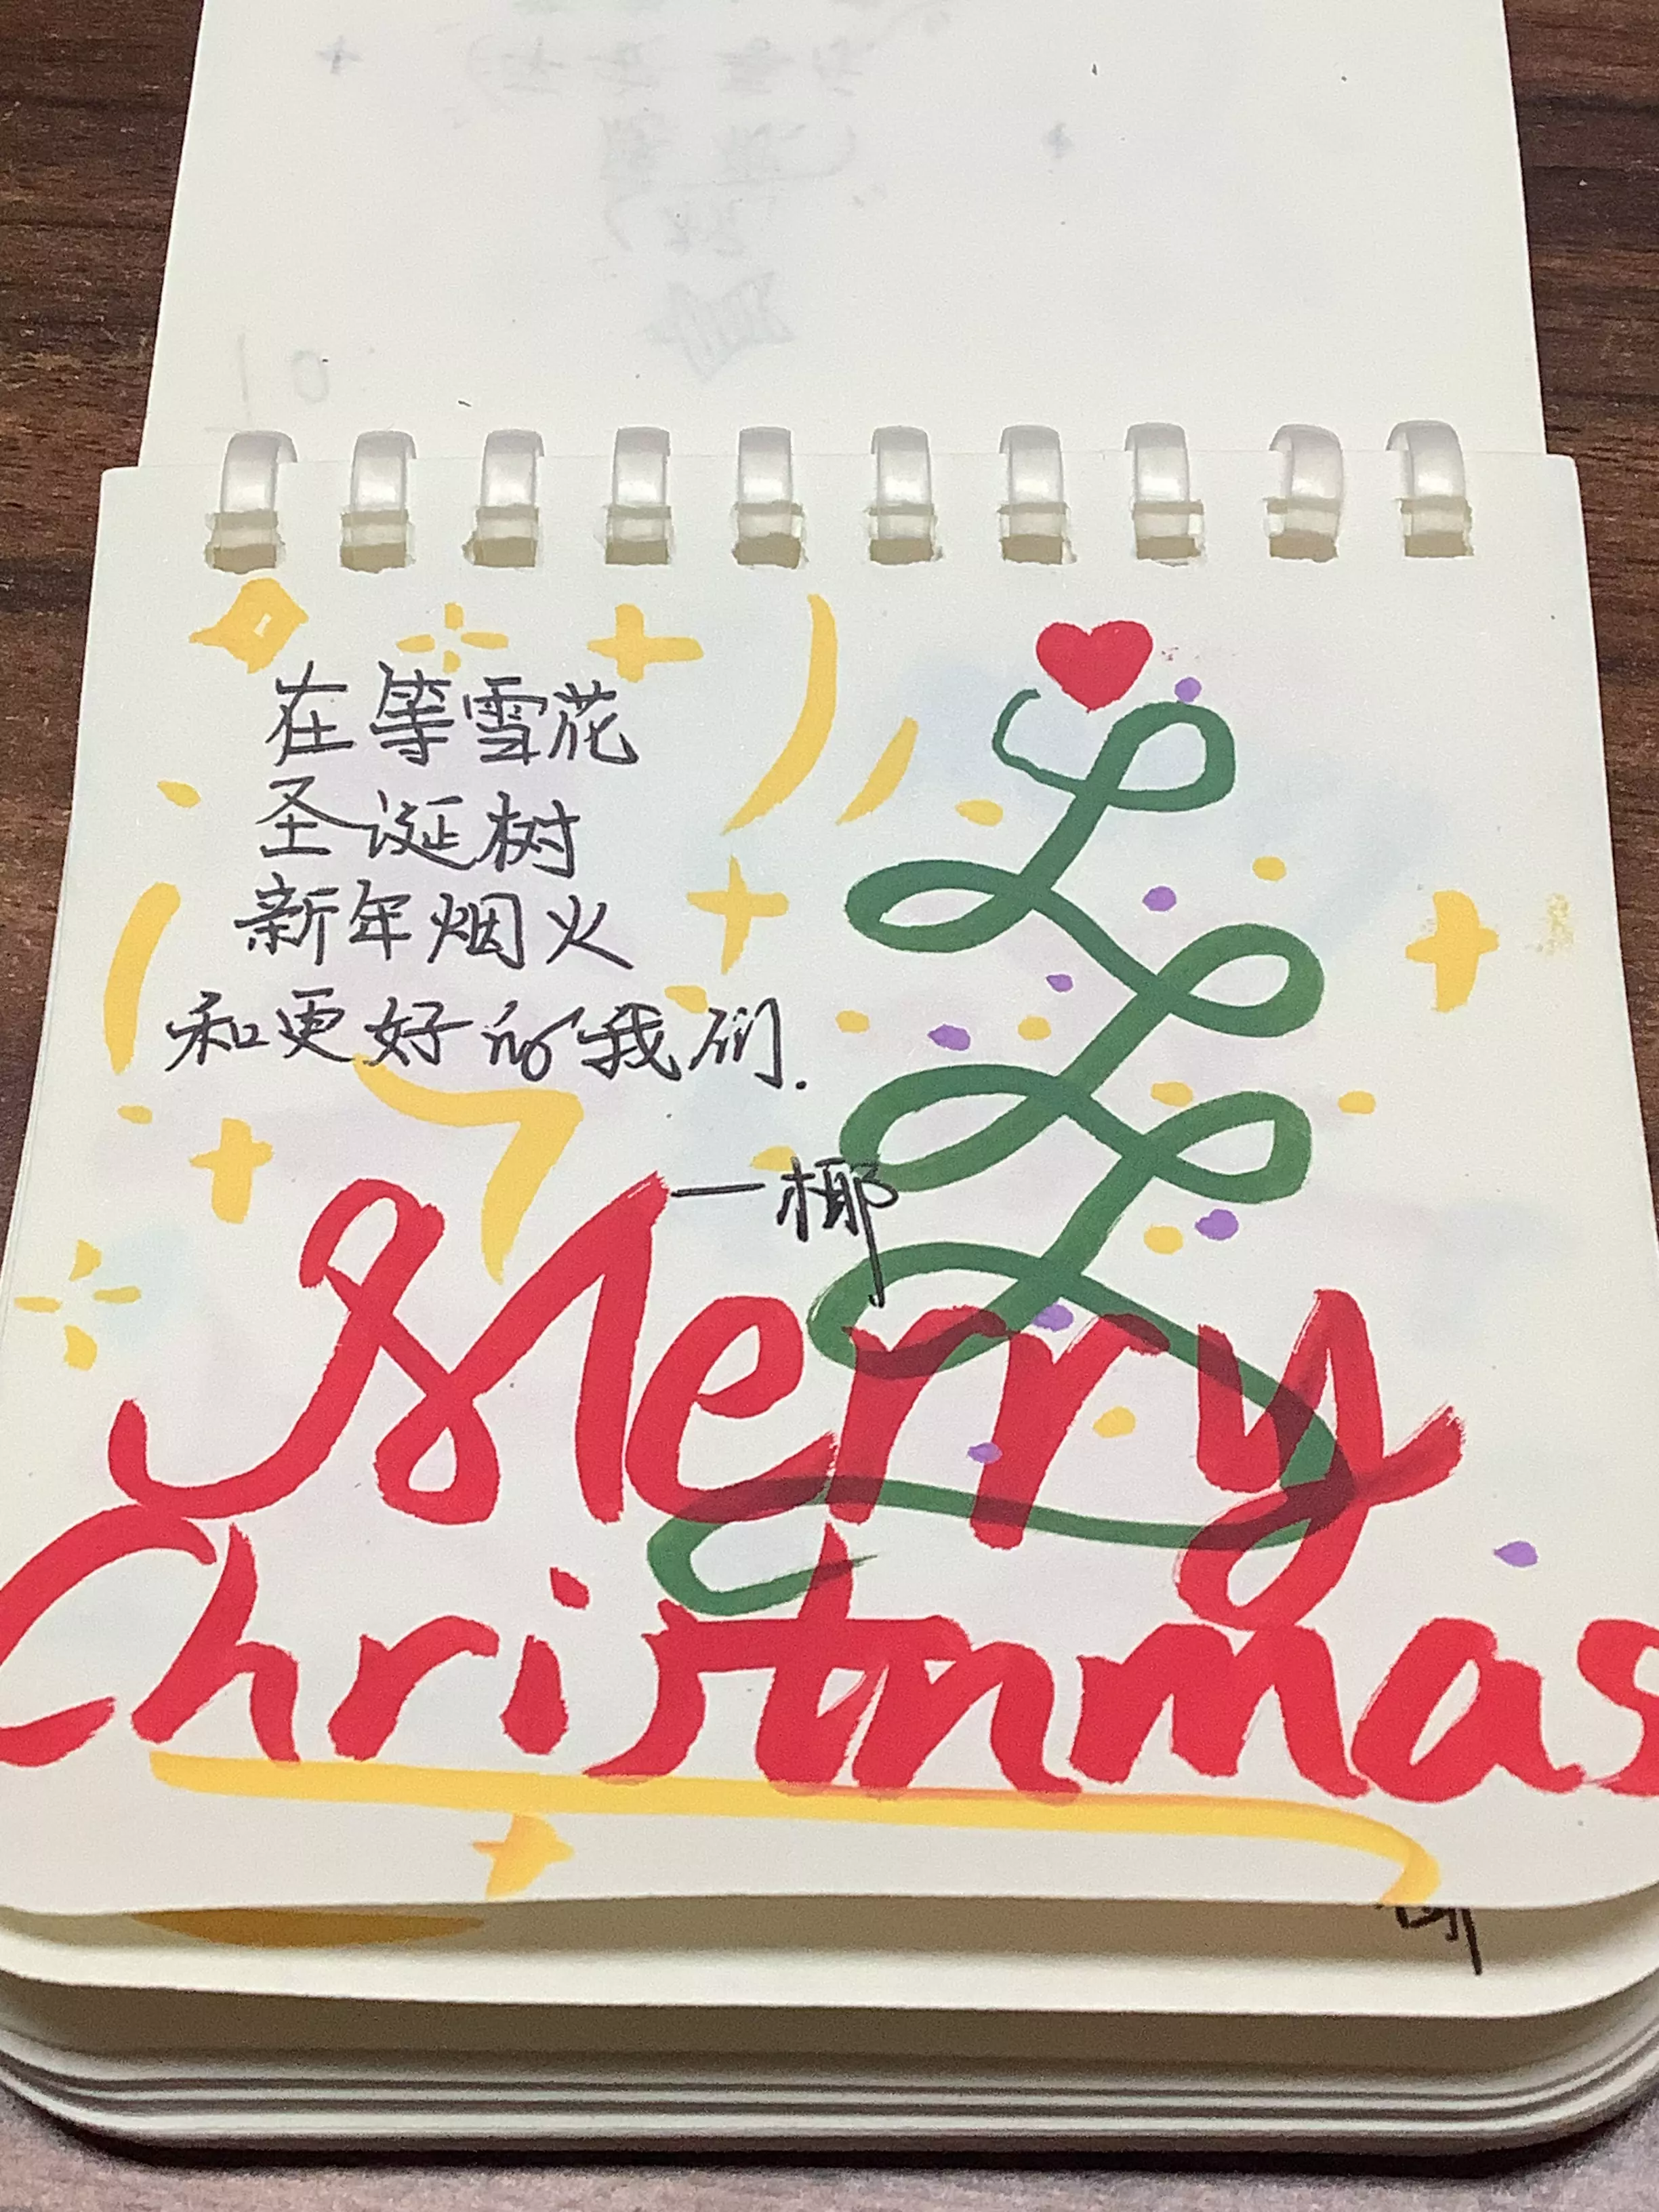 在等雪花
圣诞树
新年烟火
和更好的我们.
一椰
Merry
Christnmas